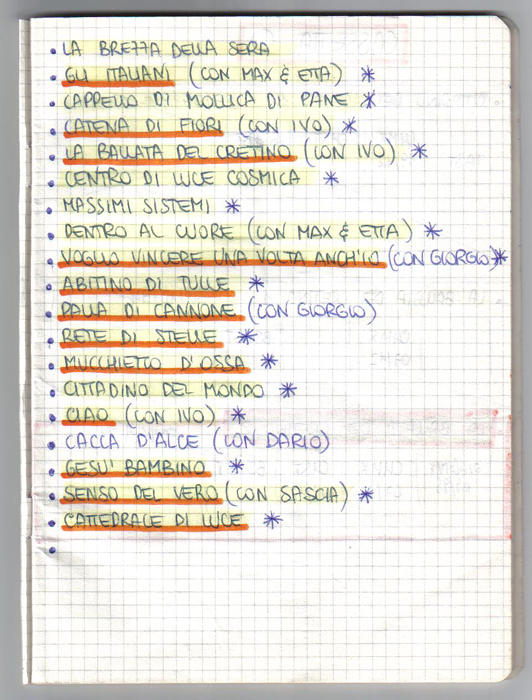 • LA BREZZA DELLA SERA
• GLI ITALIANI (CON MAX & ETTA) *
• CAPPELLO DI MOLLICA DI PANE *
• CATENA DI FIORI (CON IVO) *
• LA BALLATA DEL CRETINO (CON IVO) *
• CENTRO DI LUCE COSMICA *
• MASSIMI SISTEMI *
• DENTRO AL CUORE (CON MAX & ETTA) *
• VOGLIO VINCERE UNA VOLTA ANCH'IO (CON GIORGIO) *
• ABITINO DI TULLE *
• PALLA DI CANNONE (CON GIORGIO)
• RETE DI STELLE *
• MUCCHIETTO D'OSSA *
• CITTADINO DEL MONDO *
• CIAO (CON IVO) *
• CACCA D'ALCE (CON DARIO)
• GESU' BAMBINO *
• SENSO DEL VERO (CON SASCIA) *
• CATTEDRALE DI LUCE *
•